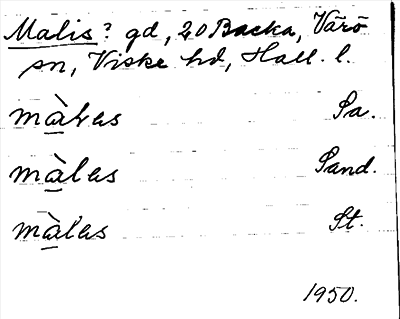 Malis? gd, 20 Backa, Värö
sn, Viske hd, Hall. l.
màlas Sa.
màlas Sand.
màlas St.
1950.